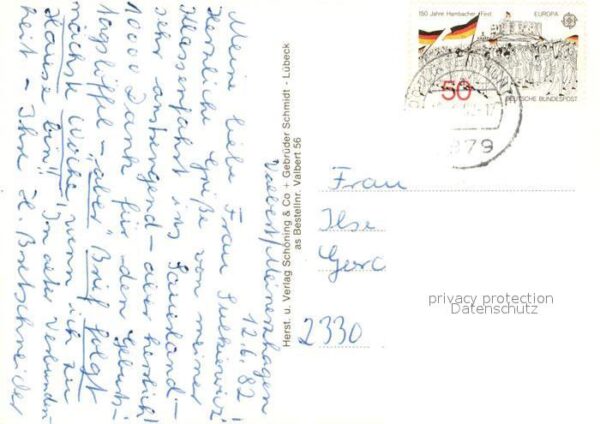 Valbert/Meinerzhagen
12.6.82
Meine liebe Frau
Herzliche Grüße von meiner
Klassenfahrt ins Sauerland –
sehr anstrengend – aber herrlich!
10000 Dank für den Geburts-
tagslöffel – "aber" Brief folgt
nächste Woche, wenn ich zu
Hause bin!! In alter Verbunden-
heit – Ihre H. Bretschneider
Herst. u. Verlag Schöning & Co + Gebrüder Schmidt - Lübeck
as Bestellnr. Valbert 56
150 Jahre Hambacher Fest
EUROPA
50
DEUTSCHE BUNDESPOST
Frau
Ilse
2330
privacy protection
Datenschutz